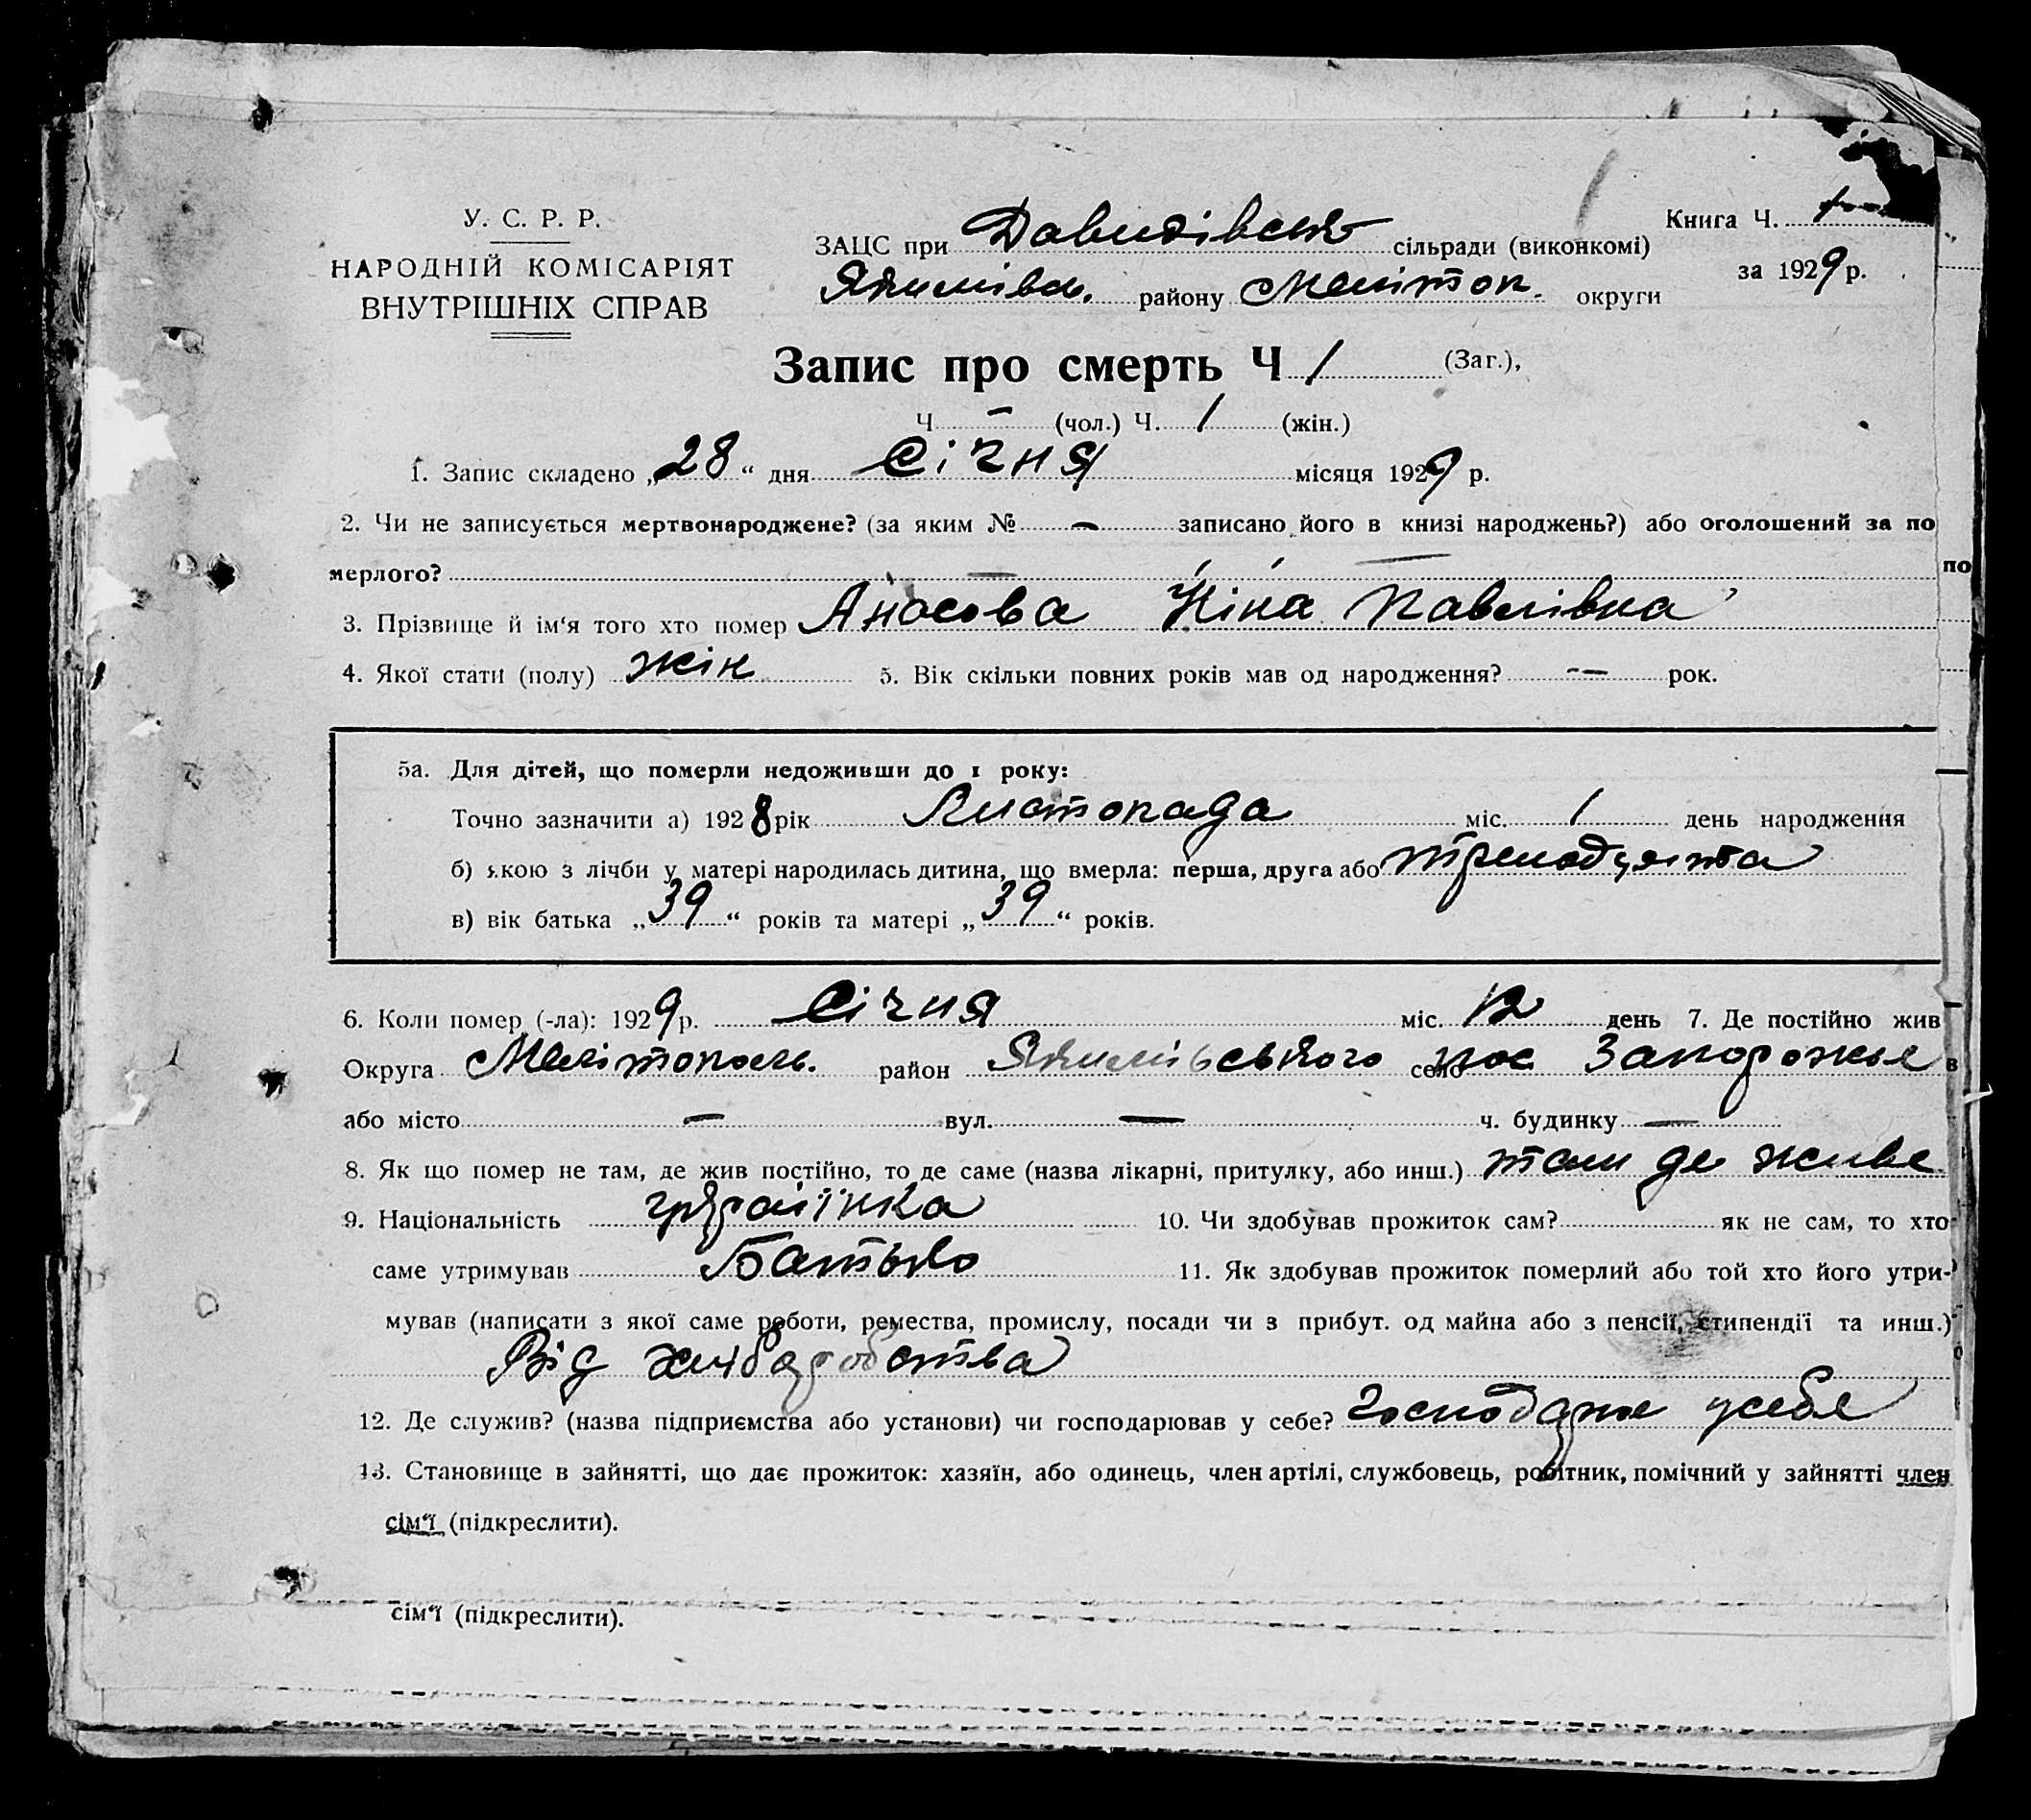 У. С. Р. Р.
НАРОДНІЙ КОМІСАРІЯТ
ВНУТРІШНІХ СПРАВ
ЗАЦС при Давидівськ сільради (виконкомі)
Якимівськ. району Мелітоп. округи
Книга Ч.
за 1929 р.
Запис про смерть Ч 1 (Заг.),
Ч – (чол.) Ч. 1 (жін.)
1. Запис складено „28“ дня Січня місяця 1929 р.
2. Чи не записується мертвонароджене? (за яким № – записано його в книзі народжень?) або оголошений за по
мерлого? — — по
3. Прізвище й ім'я того хто помер Аносова Ніна Павлівна
4. Якої стати (полу) жін 5. Вік скільки повних років мав од народження? — рок.
5а. Для дітей, що померли недоживши до 1 року:
Точно зазначити а) 1928 рік Листопада міс. 1 день народження
б) якою з лічби у матері народилась дитина, що вмерла: перша, друга або
в) вік батька „39“ років та матері „39“ років.
6. Коли помер (-ла): 1929 р. Січня міс. 12 день 7. Де постійно жив
Округа Мелітополь. район Якимівського село пос Запорожье в
або місто — вул. — ч. будинку —
8. Як що помер не там, де жив постійно, то де саме (назва лікарні, притулку, або инш.) там де живе
9. Національність украінка 10. Чи здобував прожиток сам? як не сам, то хто
саме утримував Батько 11. Як здобував прожиток померлий або той хто його утри-
мував (написати з якої саме роботи, ремества, промислу, посади чи з прибут. од майна або з пенсії, стипендії та инш.)
Від хлібаробства
12. Де служив? (назва підприємства або установи) чи господарював у себе? Господарює усебе
13. Становище в зайнятті, що дає прожиток: хазяїн, або одинець, член артілі, службовець, робітник, помічний у зайнятті член
сім'ї (підкреслити).
сім'ї (підкреслити).